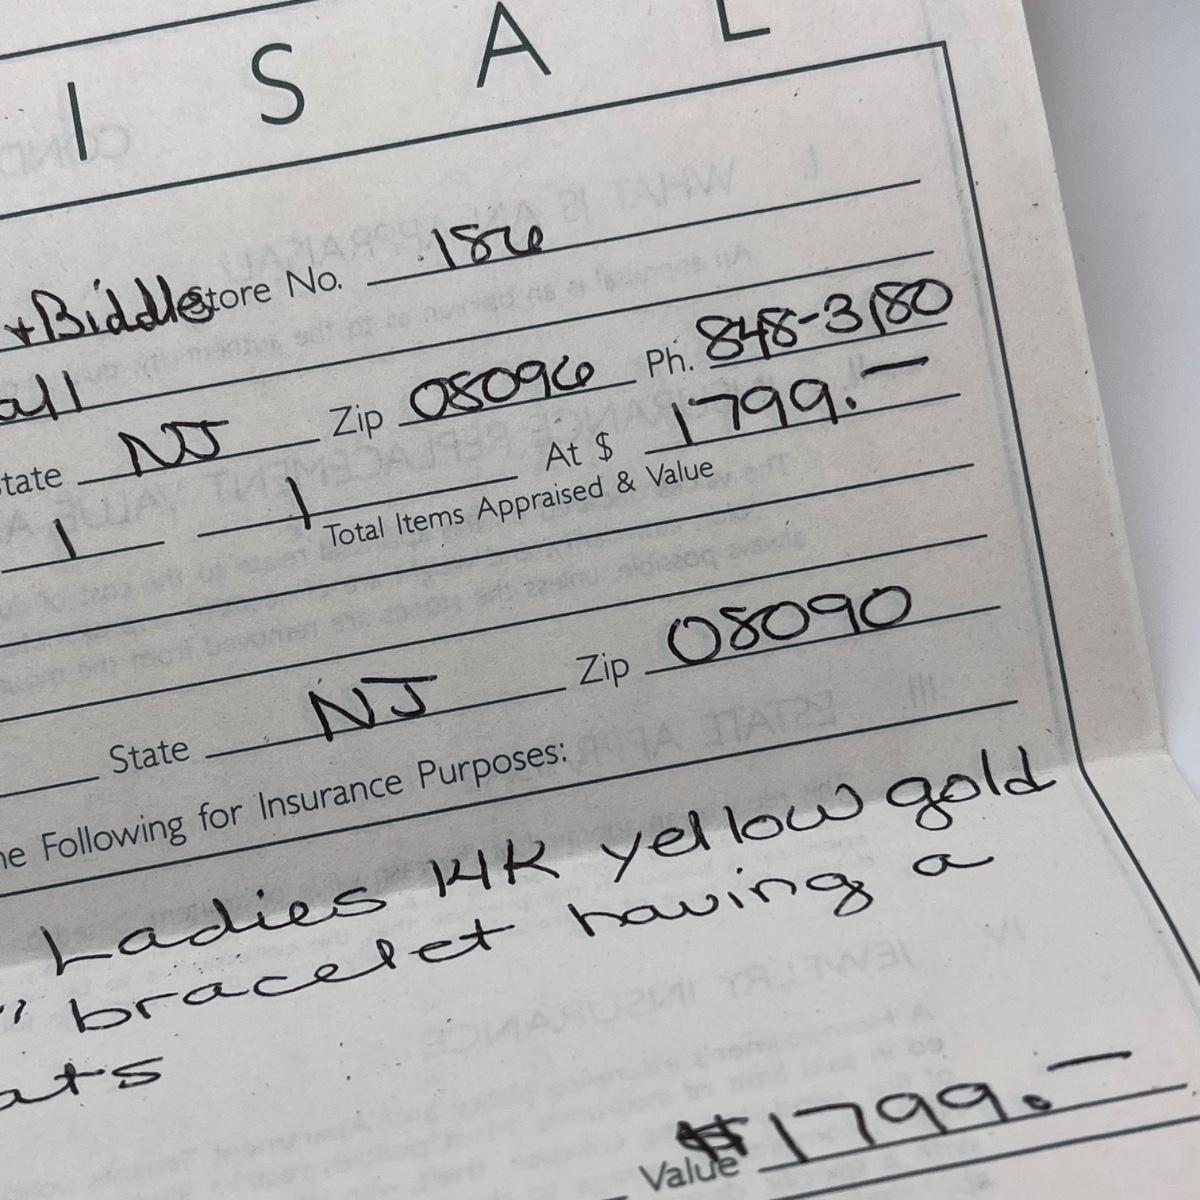 I S A L
+ Biddle Store No. 186
all
State NJ Zip 08096 Ph. 848-3180
1 1 At $ 1799.—
Total Items Appraised & Value
State NJ Zip 08090
he Following for Insurance Purposes:
Ladies 14K yellow gold
" bracelet having a
ats
Value $1799.—